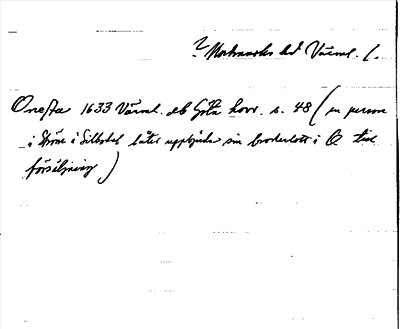 ? Marknads hd Värml. l.
Onesta 1633 Värml. db Göta hovr. s. 48 (en person
i Ström i Silbodal låter uppbjuda sin broderlott i O. till
försäljning)